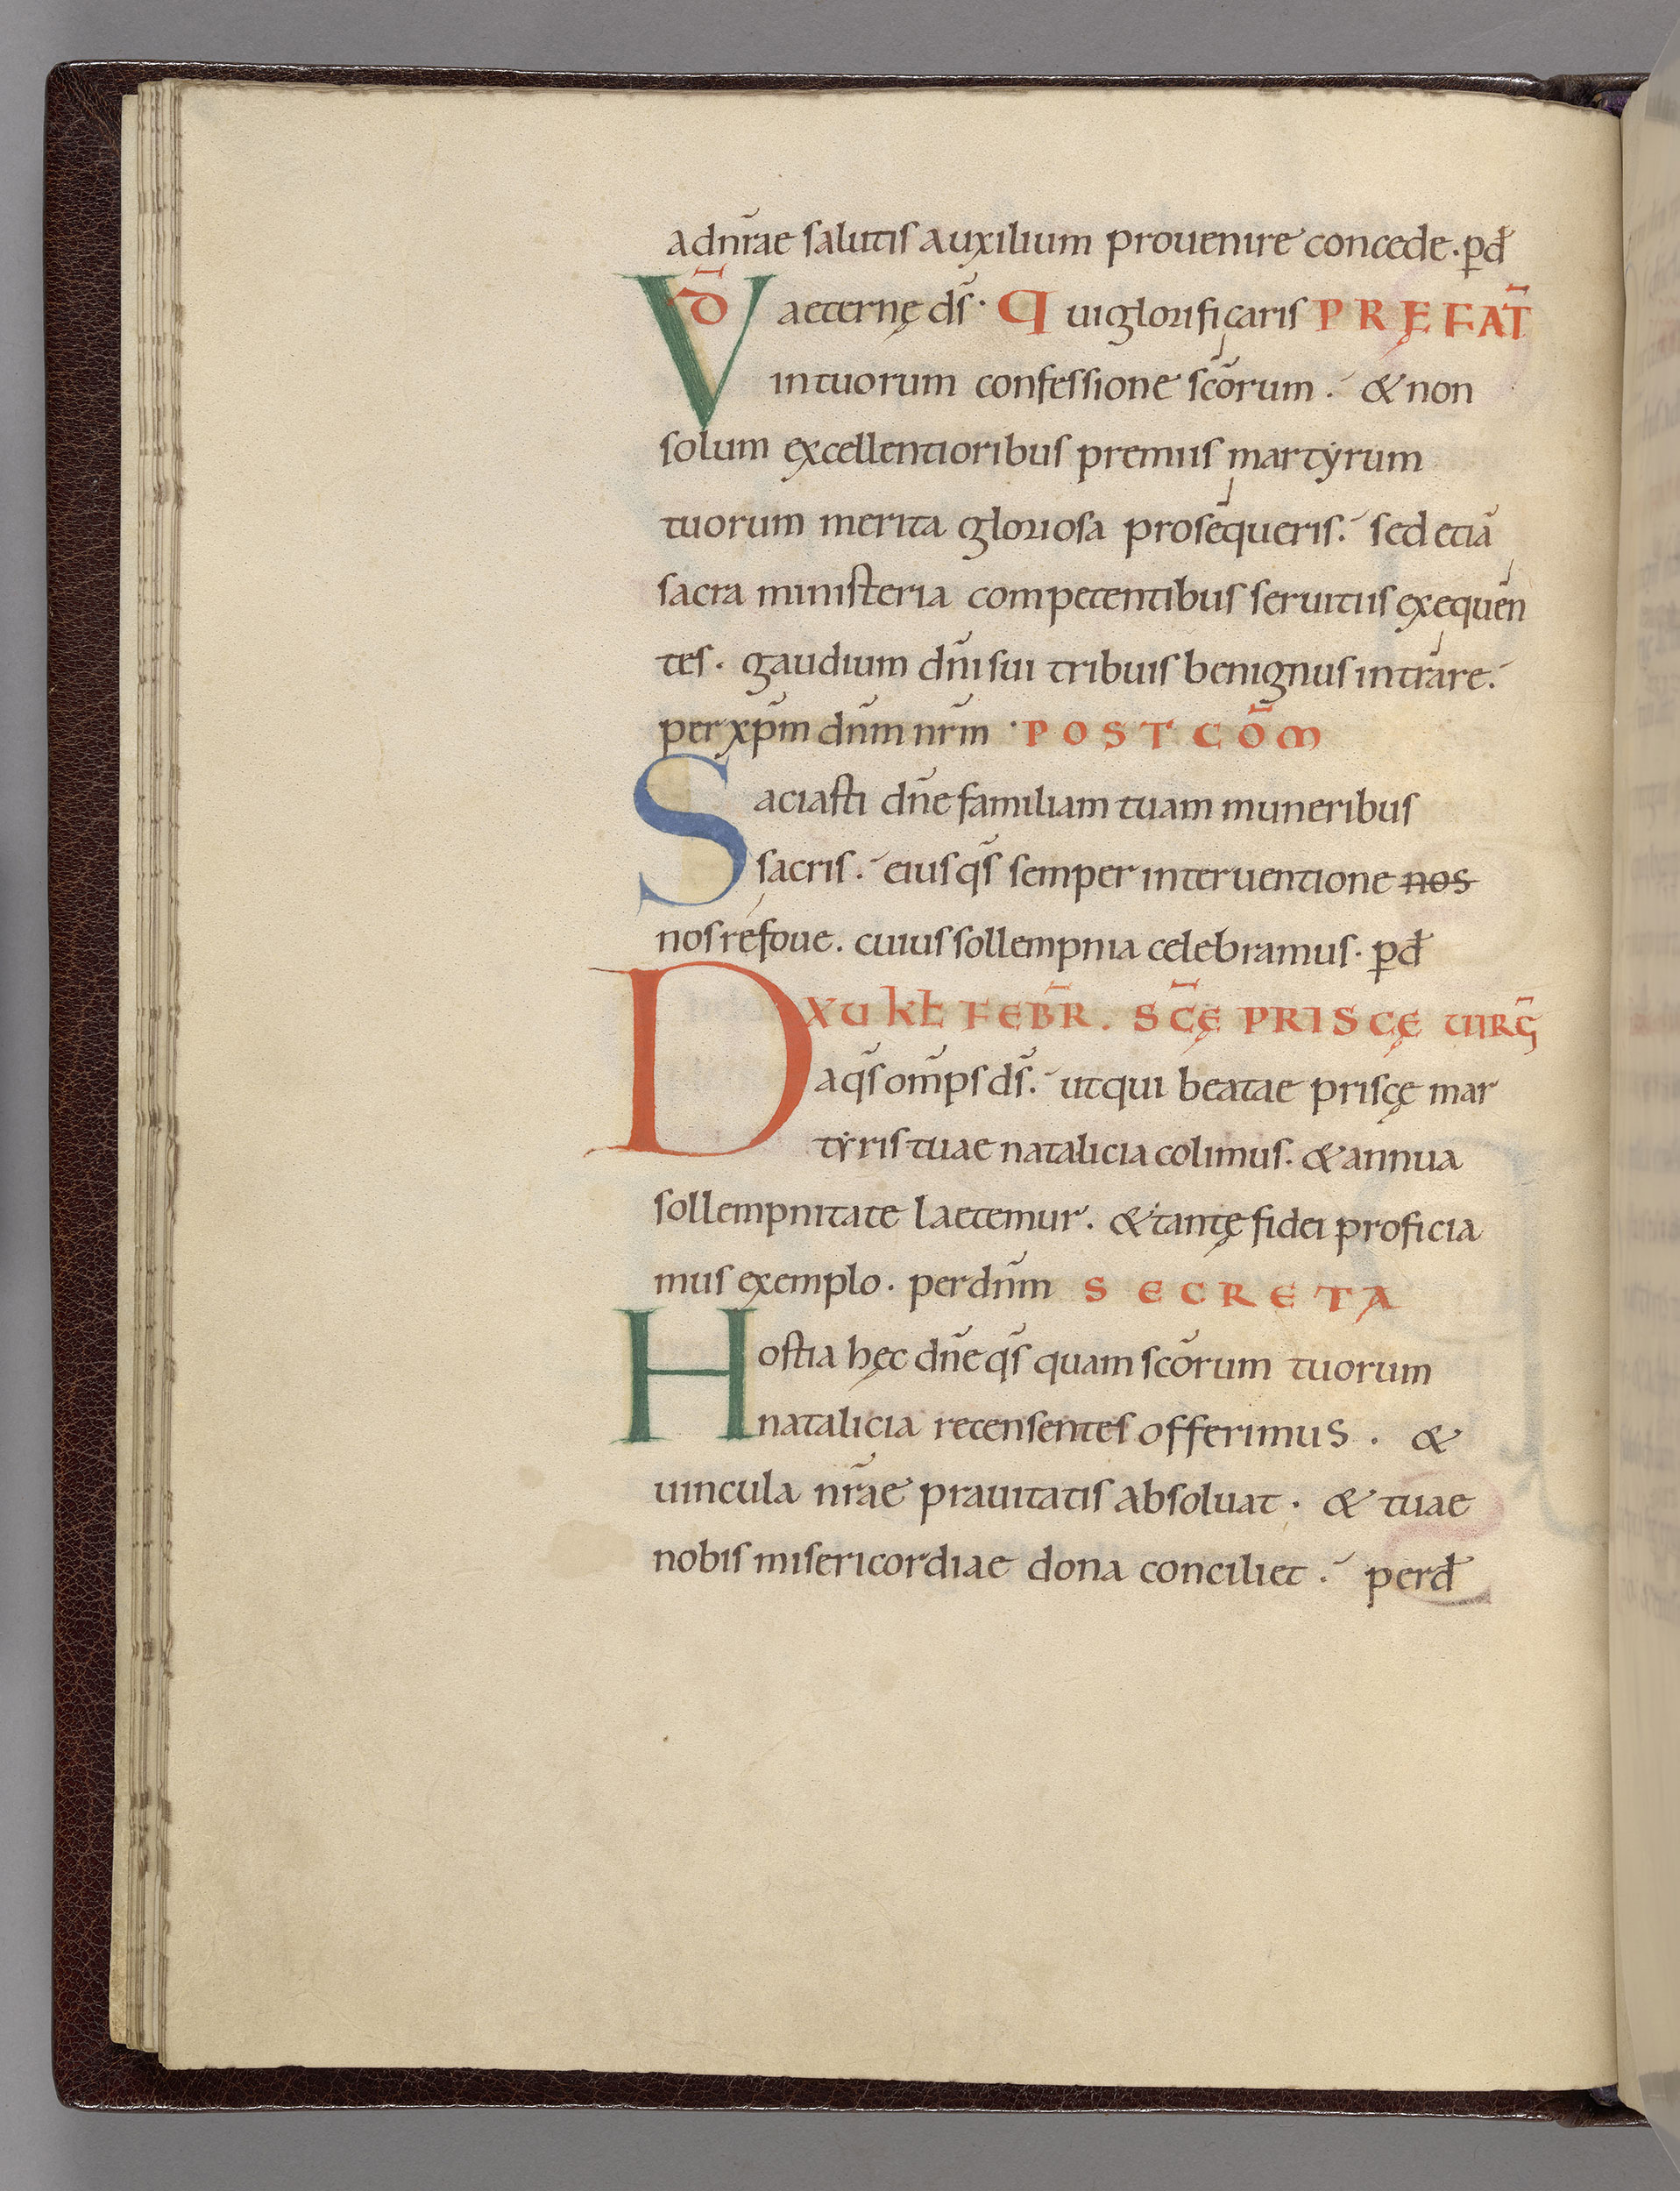 adnr̄ae salutis auxilium prouenire concede. pđ
VD̄ aeternę ds̄. Qui glorificaris PRĘFAT̄
in tuorum confessione scōrum. & non
solum excellentioribus premiis martyrum
tuorum merita gloriosa prosequeris. sed etiā
sacra ministeria competentibus seruitiis exequen
tes. gaudium dn̄i sui tribuis benignus intrare.
per xp̄m dn̄m nr̄m. POST COM̄
Saciasti dn̄e familiam tuam muneribus
sacris. eius qs̄ semper interuentione nos
nos refoue. cuius sollempnia celebramus. pđ
XU kł FEBR̄. SC̄Ę PRISCĘ UIRḠ
Da qs̄ om̄ps ds̄. ut qui beatae priscę mar
tyris tuae natalicia colimus. & annua
sollempnitate laetemur. & tantę fidei proficia
mus exemplo. per dn̄m SECRETA
Hostia hęc dn̄e qs̄ quam scōrum tuorum
natalicia recensentes offerimus. &
uincula nr̄ae prauitatis absoluat. & tuae
nobis misericordiae dona conciliet. per đ